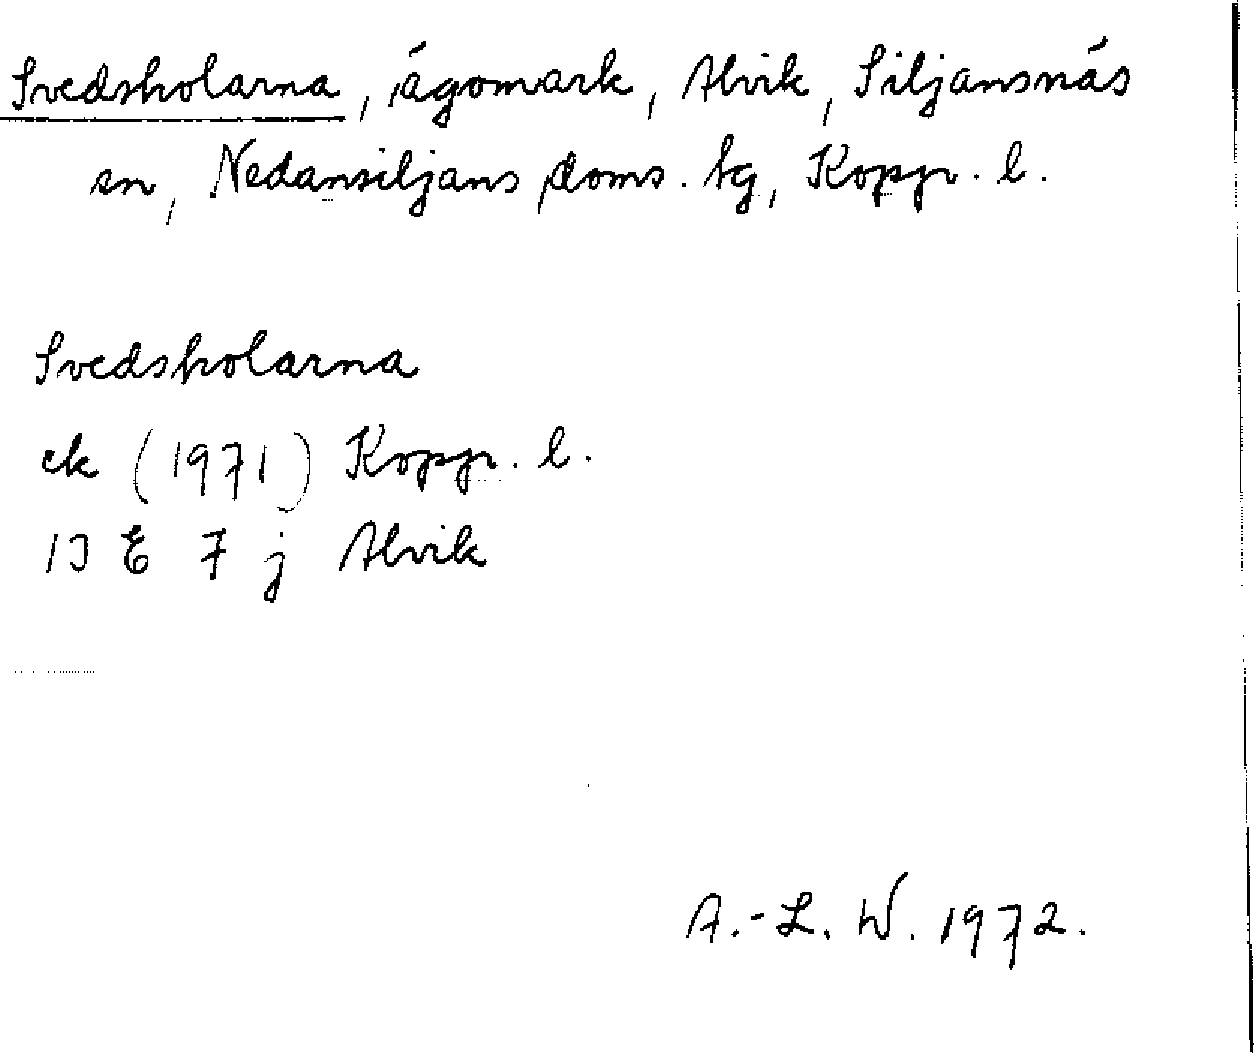 Svedsholarna, ägomark, Alvik, Siljansnäs
sn, Nedansiljans doms. tg, Kopp. l.
Svedsholarna
ek (1971) Kopp. l.
13 E 7 j Alvik
A.-L. W. 1972.